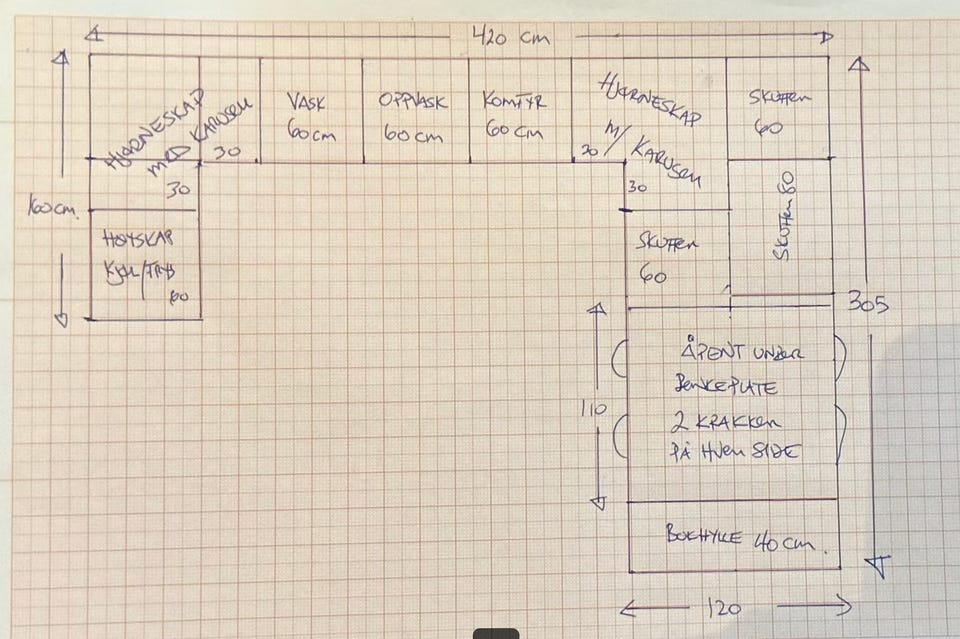 420 cm
HJØRNESKAP
MED KARUSELL
30
30
VASK
60 cm
OPPVASK
60 cm
KOMFYR
60 cm
HJØRNESKAP
M/ KARUSELL
30
30
SKUFFER
60
SKUFFER 80
SKUFFER
60
160 cm.
HØYSKAP
KJØL/FRYS
60
305
110
ÅPENT UNDER
BENKEPLATE
2 KRAKKER
PÅ HVER SIDE
BOKHYLLE 40 cm.
120